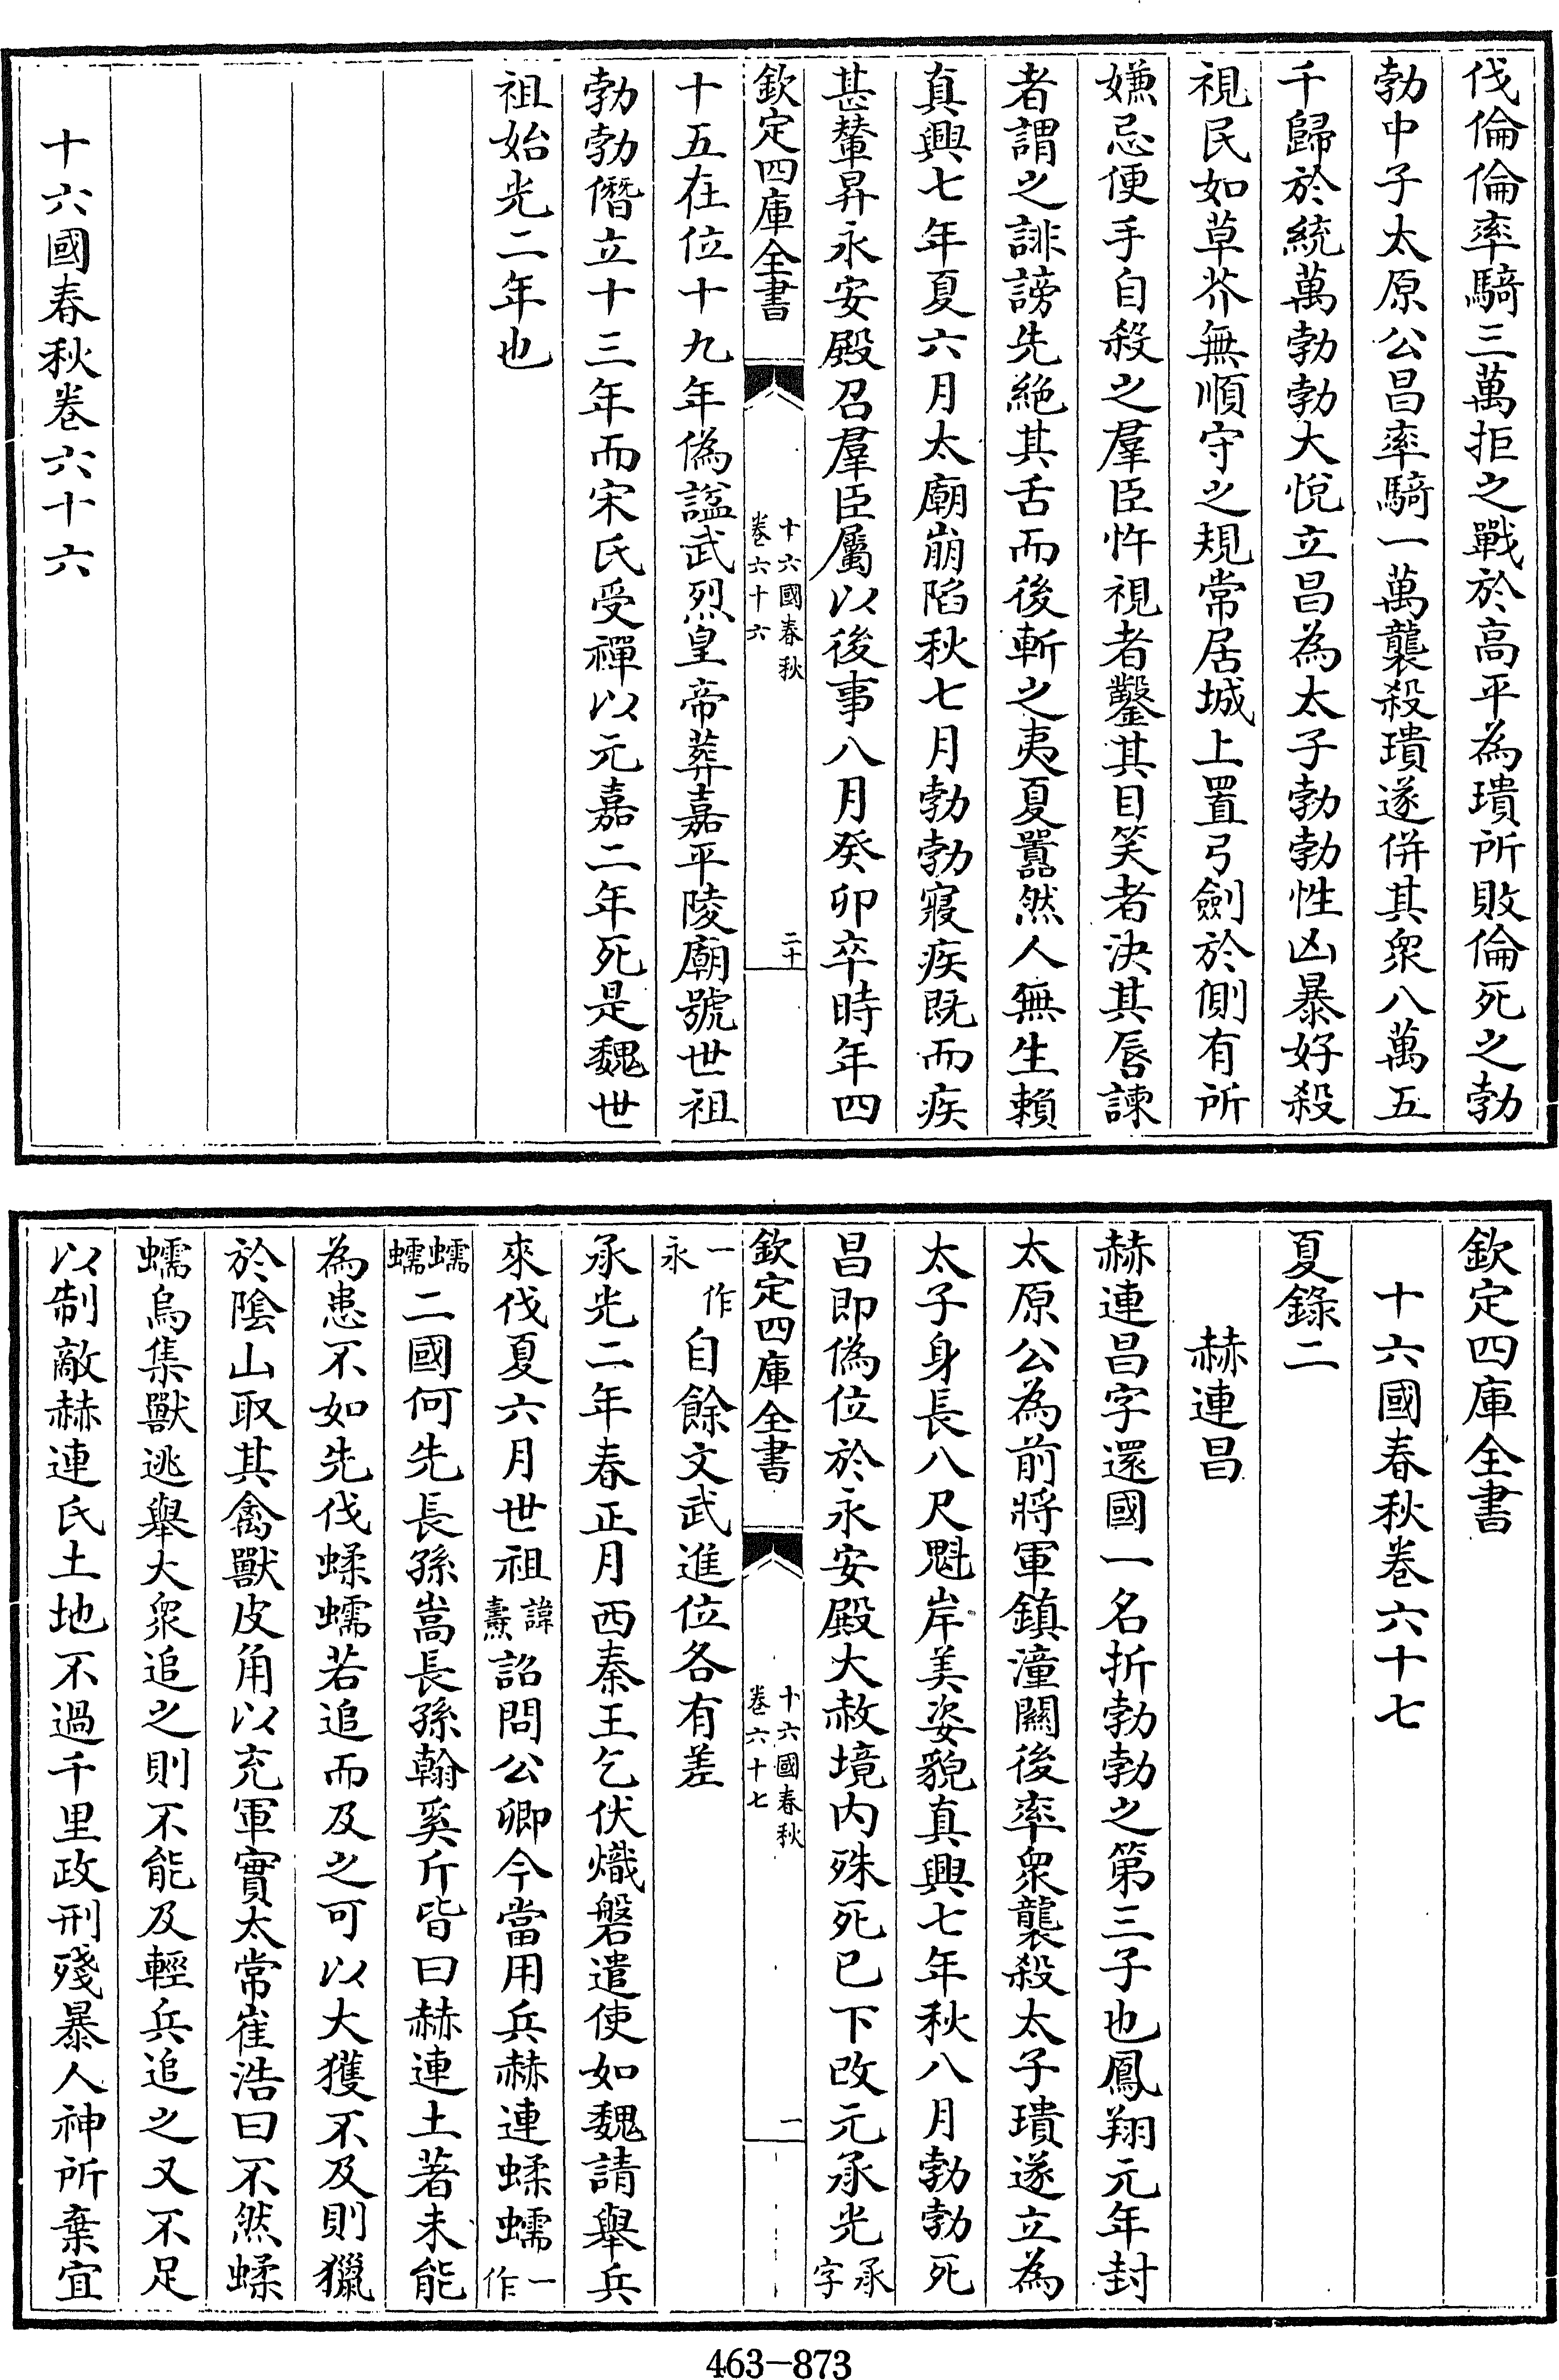 伐倫倫率騎三萬拒之戰於高平為璝所敗倫死之勃
勃中子太原公昌率騎一萬襲殺璝遂併其衆八萬五
千歸於統萬勃勃大悅立昌為太子勃勃性凶暴好殺
視民如草芥無順守之規常居城上置弓劍於側有所
嫌忌便手自殺之羣臣忤視者鑿其目笑者決其唇諫
者謂之誹謗先絶其舌而後斬之夷夏囂然人無生賴
真興七年夏六月太廟崩陷秋七月勃勃寢疾既而疾
甚輦昇永安殿召羣臣屬以後事八月癸卯卒時年四
欽定四庫全書
十六國春秋
卷六十六
二十
十五在位十九年偽諡武烈皇帝葬嘉平陵廟號世祖
勃勃僭立十三年而宋氏受禪以元嘉二年死是魏世
祖始光二年也
十六國春秋卷六十六
欽定四庫全書
十六國春秋卷六十七
夏錄二
赫連昌
赫連昌字還國一名折勃勃之第三子也鳳翔元年封
太原公為前將軍鎮潼關後率衆襲殺太子璝遂立為
太子身長八尺魁岸美姿貌真興七年秋八月勃勃死
昌即偽位於永安殿大赦境内殊死已下改元承光承字
欽定四庫全書
十六國春秋
卷六十七
一
一作永自餘文武進位各有差
承光二年春正月西秦王乞伏熾磐遣使如魏請舉兵
來伐夏六月世祖諱燾詔問公卿今當用兵赫連蝚蠕一作
蠕蠕二國何先長孫嵩長孫翰奚斤皆曰赫連土著未能
為患不如先伐蝚蠕若追而及之可以大獲不及則獵
於陰山取其禽獸皮角以充軍實太常崔浩曰不然蝚
蠕鳥集獸逃舉大衆追之則不能及輕兵追之又不足
以制敵赫連氏土地不過千里政刑殘暴人神所棄宜
463-873